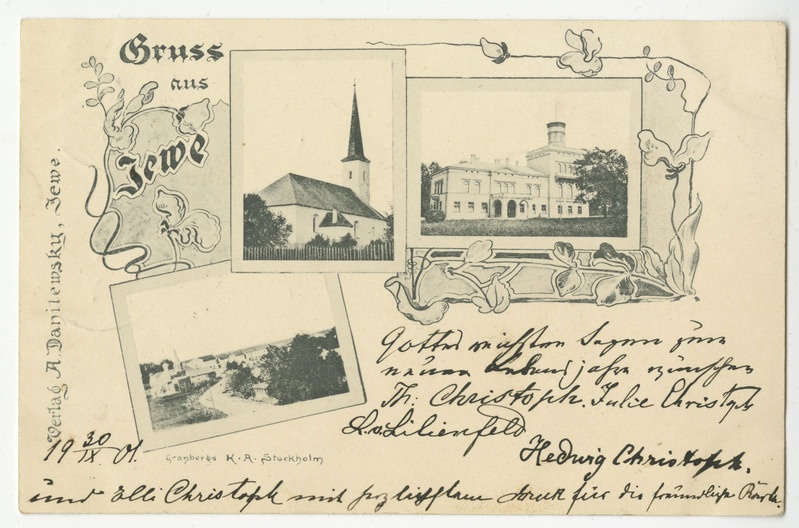 Gruss
aus
Jewe
Verlag A. Danilewsky, Jewe.
Gottes reichsten Segen zum
neuen Lebensjahre wünschen
Th: Christoph. Julie Christoph
L. v. Lilienfeld
Hedwig Christoph.
19 30/IX 01.
Granbergs K. A. Stockholm
und Elli Christoph mit herzlichstem Dank für die freundliche Karte.